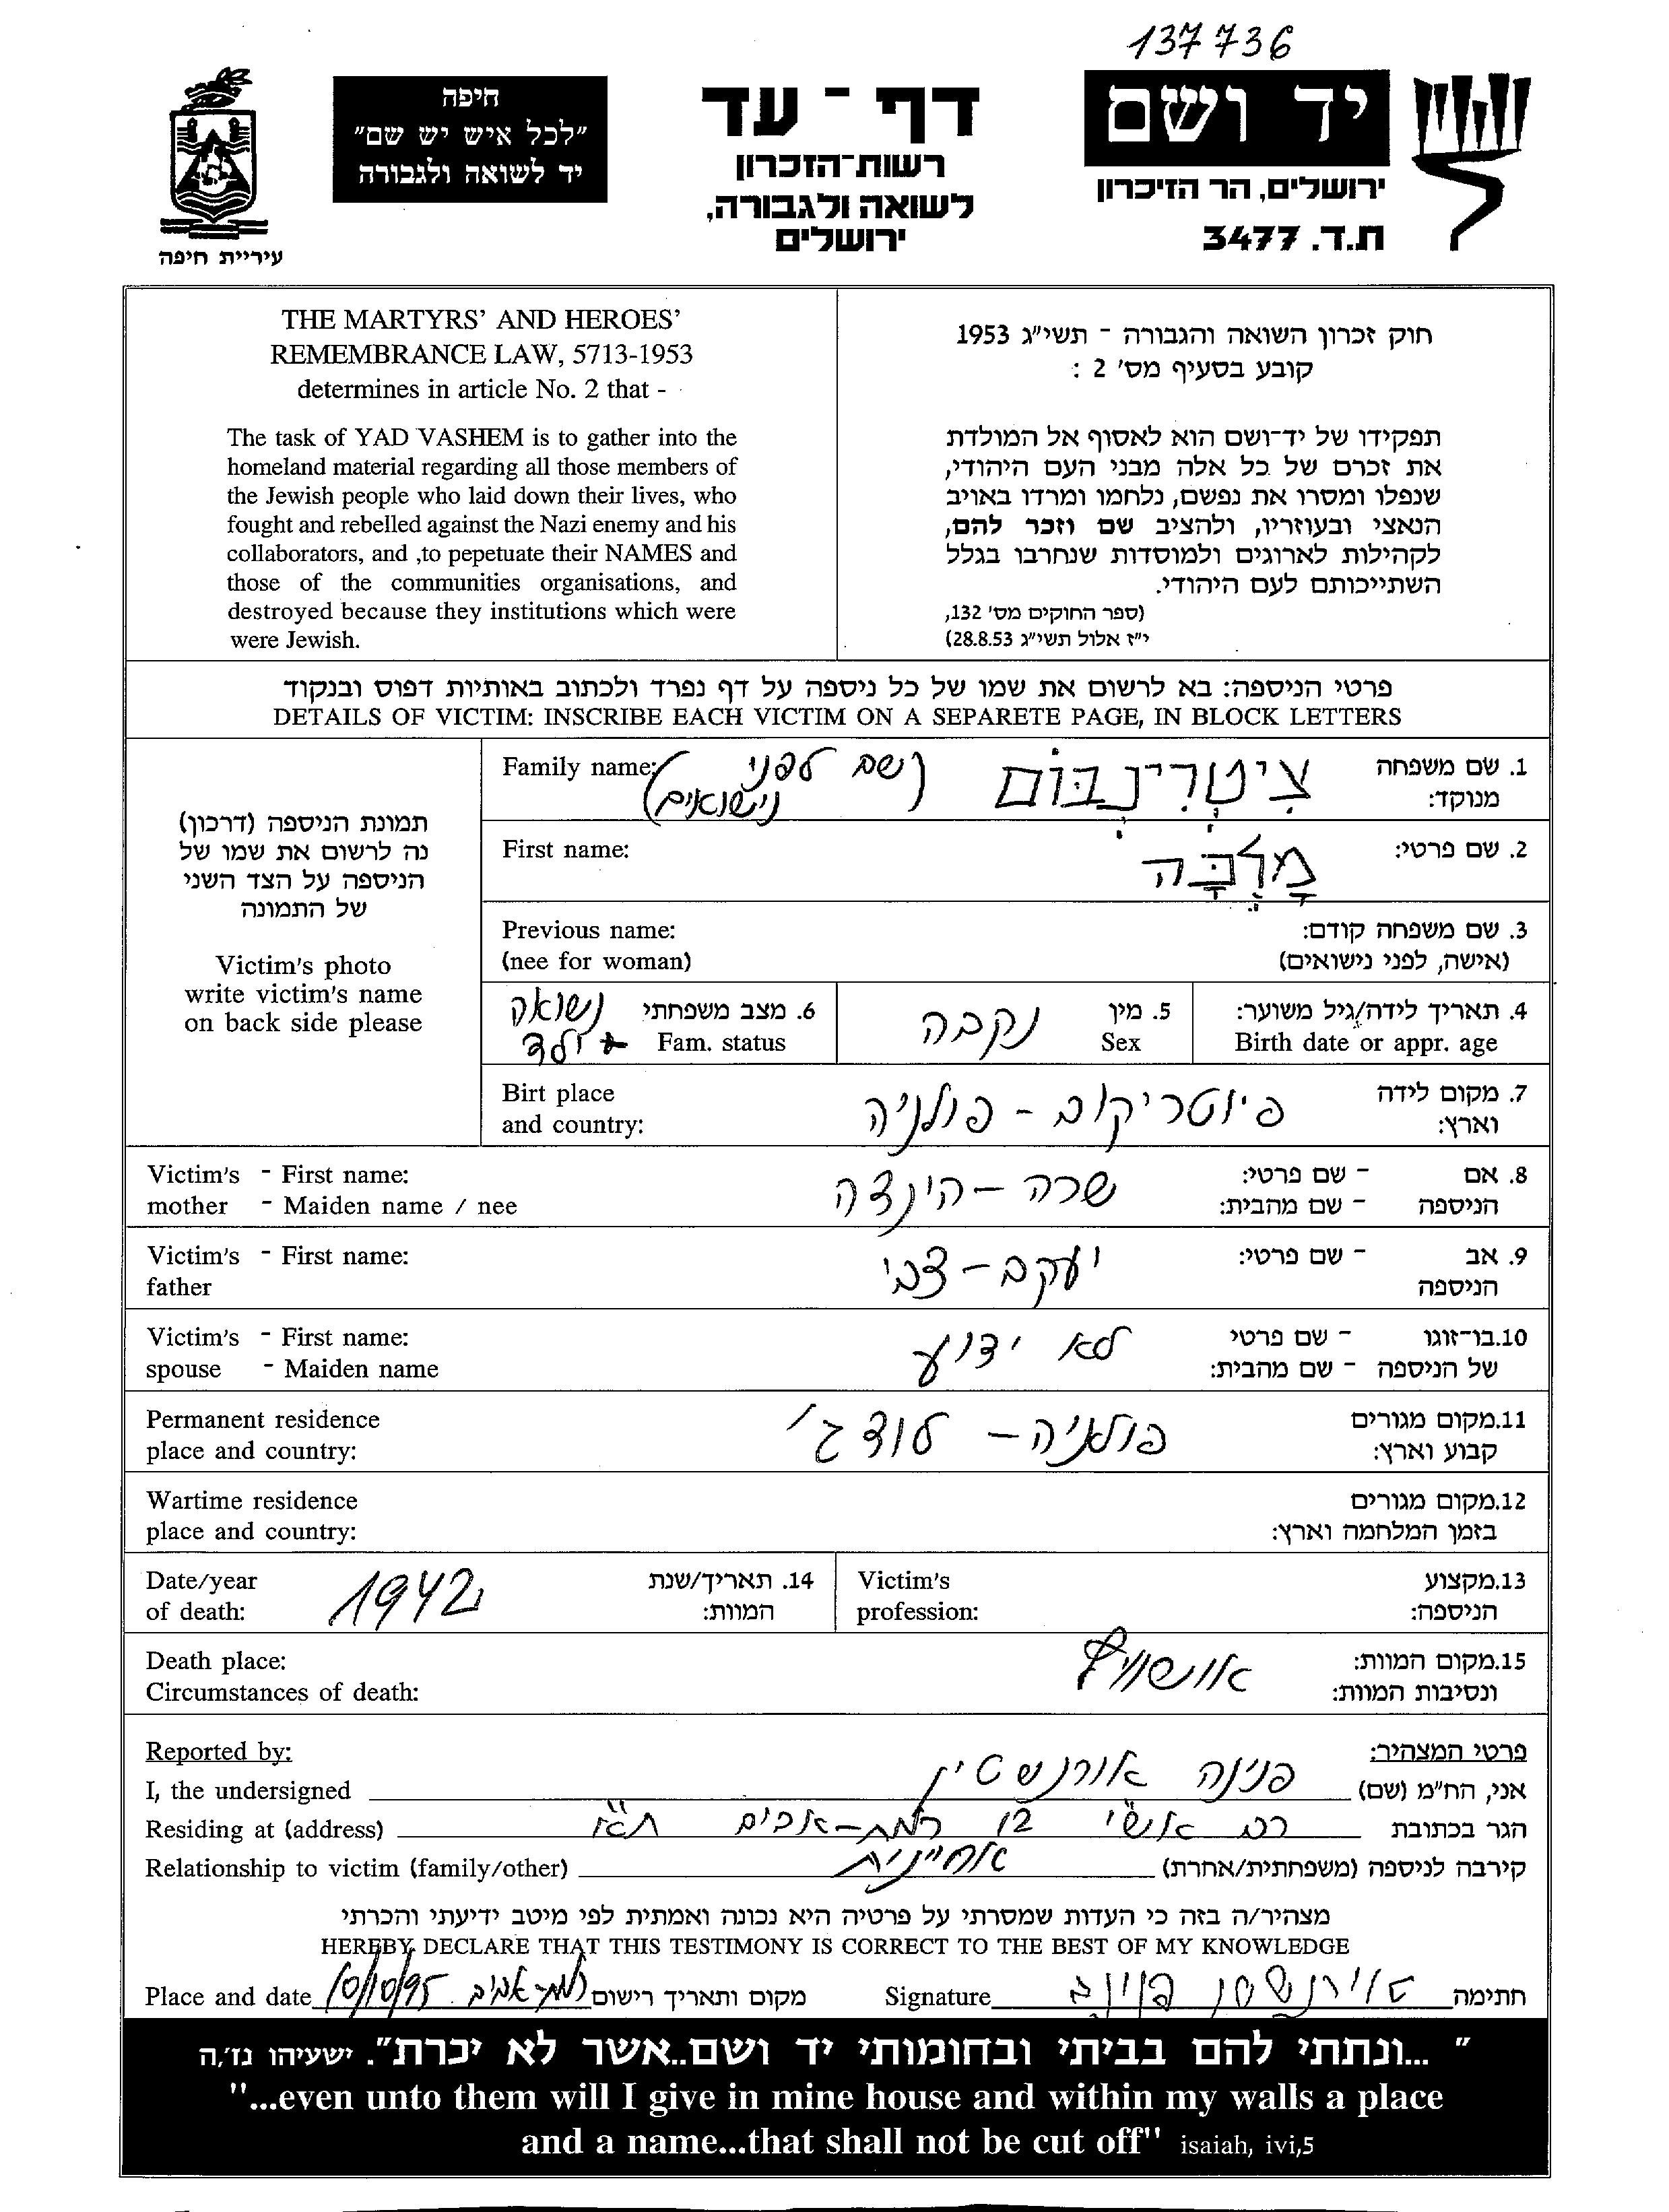 137736
יד ושם
ירושלים, הר הזיכרון
ת.ד. 3477
דף - עד
רשות-הזכרון
לשואה ולגבורה,
ירושלים
חיפה
"לכל איש יש שם"
יד לשואה ולגבורה
עיריית חיפה
חוק זכרון השואה והגבורה - תשי"ג 1953
קובע בסעיף מס' 2 :
תפקידו של יד-ושם הוא לאסוף אל המולדת
את זכרם של כל אלה מבני העם היהודי,
שנפלו ומסרו את נפשם, נלחמו ומרדו באויב
הנאצי ובעוזריו, ולהציב שם וזכר להם,
לקהילות לארוגים ולמוסדות שנחרבו בגלל
השתייכותם לעם היהודי.
(ספר החוקים מס' 132,
י"ז אלול תשי"ג 28.8.53)
THE MARTYRS' AND HEROES'
REMEMBRANCE LAW, 5713-1953
determines in article No. 2 that -
The task of YAD VASHEM is to gather into the
homeland material regarding all those members of
the Jewish people who laid down their lives, who
fought and rebelled against the Nazi enemy and his
collaborators, and ,to pepetuate their NAMES and
those of the communities organisations, and
destroyed because they institutions which were
were Jewish.
פרטי הניספה: בא לרשום את שמו של כל ניספה על דף נפרד ולכתוב באותיות דפוס ובנקוד
DETAILS OF VICTIM: INSCRIBE EACH VICTIM ON A SEPARETE PAGE, IN BLOCK LETTERS
תמונת הניספה (דרכון)
נה לרשום את שמו של
הניספה על הצד השני
של התמונה
Victim's photo
write victim's name
on back side please
1. שם משפחה
מנוקד:
צִיטְרִינְבּוֹם (שם לפני
נישואים)
Family name:
2. שם פרטי: מָלְכָּה
First name:
3. שם משפחה קודם:
(אישה, לפני נישואים)
Previous name:
(nee for woman)
4. תאריך לידה/גיל משוער:
Birth date or appr. age
5. מין נקבה
Sex
6. מצב משפחתי נשואה
Fam. status + ילד
7. מקום לידה
וארץ:
פיוטריקוב - פולניה
Birt place
and country:
8. אם - שם פרטי: שרה - הינדה
הניספה - שם מהבית:
Victim's - First name:
mother - Maiden name / nee
9. אב - שם פרטי: יעקב - צבי
הניספה
Victim's - First name:
father
10.בו-זוגו - שם פרטי לא ידוע
של הניספה - שם מהבית:
Victim's - First name:
spouse - Maiden name
11.מקום מגורים
קבוע וארץ:
פולניה - לודג'
Permanent residence
place and country:
12.מקום מגורים
בזמן המלחמה וארץ:
Wartime residence
place and country:
13.מקצוע
הניספה:
Victim's
profession:
14. תאריך/שנת
המוות:
1942
Date/year
of death:
15.מקום המוות:
ונסיבות המוות:
אושוויץ
Death place:
Circumstances of death:
פרטי המצהיר:
Reported by:
אני, הח"מ (שם) פנינה אורנשטין
I, the undersigned
הגר בכתובת רב אשי 12 רמת-אביב ת"א
Residing at (address)
קירבה לניספה (משפחתית/אחרת) אחיינית
Relationship to victim (family/other)
מצהיר/ה בזה כי העדות שמסרתי על פרטיה היא נכונה ואמתית לפי מיטב ידיעתי והכרתי
HEREBY DECLARE THAT THIS TESTIMONY IS CORRECT TO THE BEST OF MY KNOWLEDGE
Place and date 10/10/95 רמת-אביב מקום ותאריך רישום
Signature חתימה
"...ונתתי להם בביתי ובחומותי יד ושם..אשר לא יכרת". ישעיהו נז',ה
"...even unto them will I give in mine house and within my walls a place
and a name...that shall not be cut off" isaiah, ivi,5